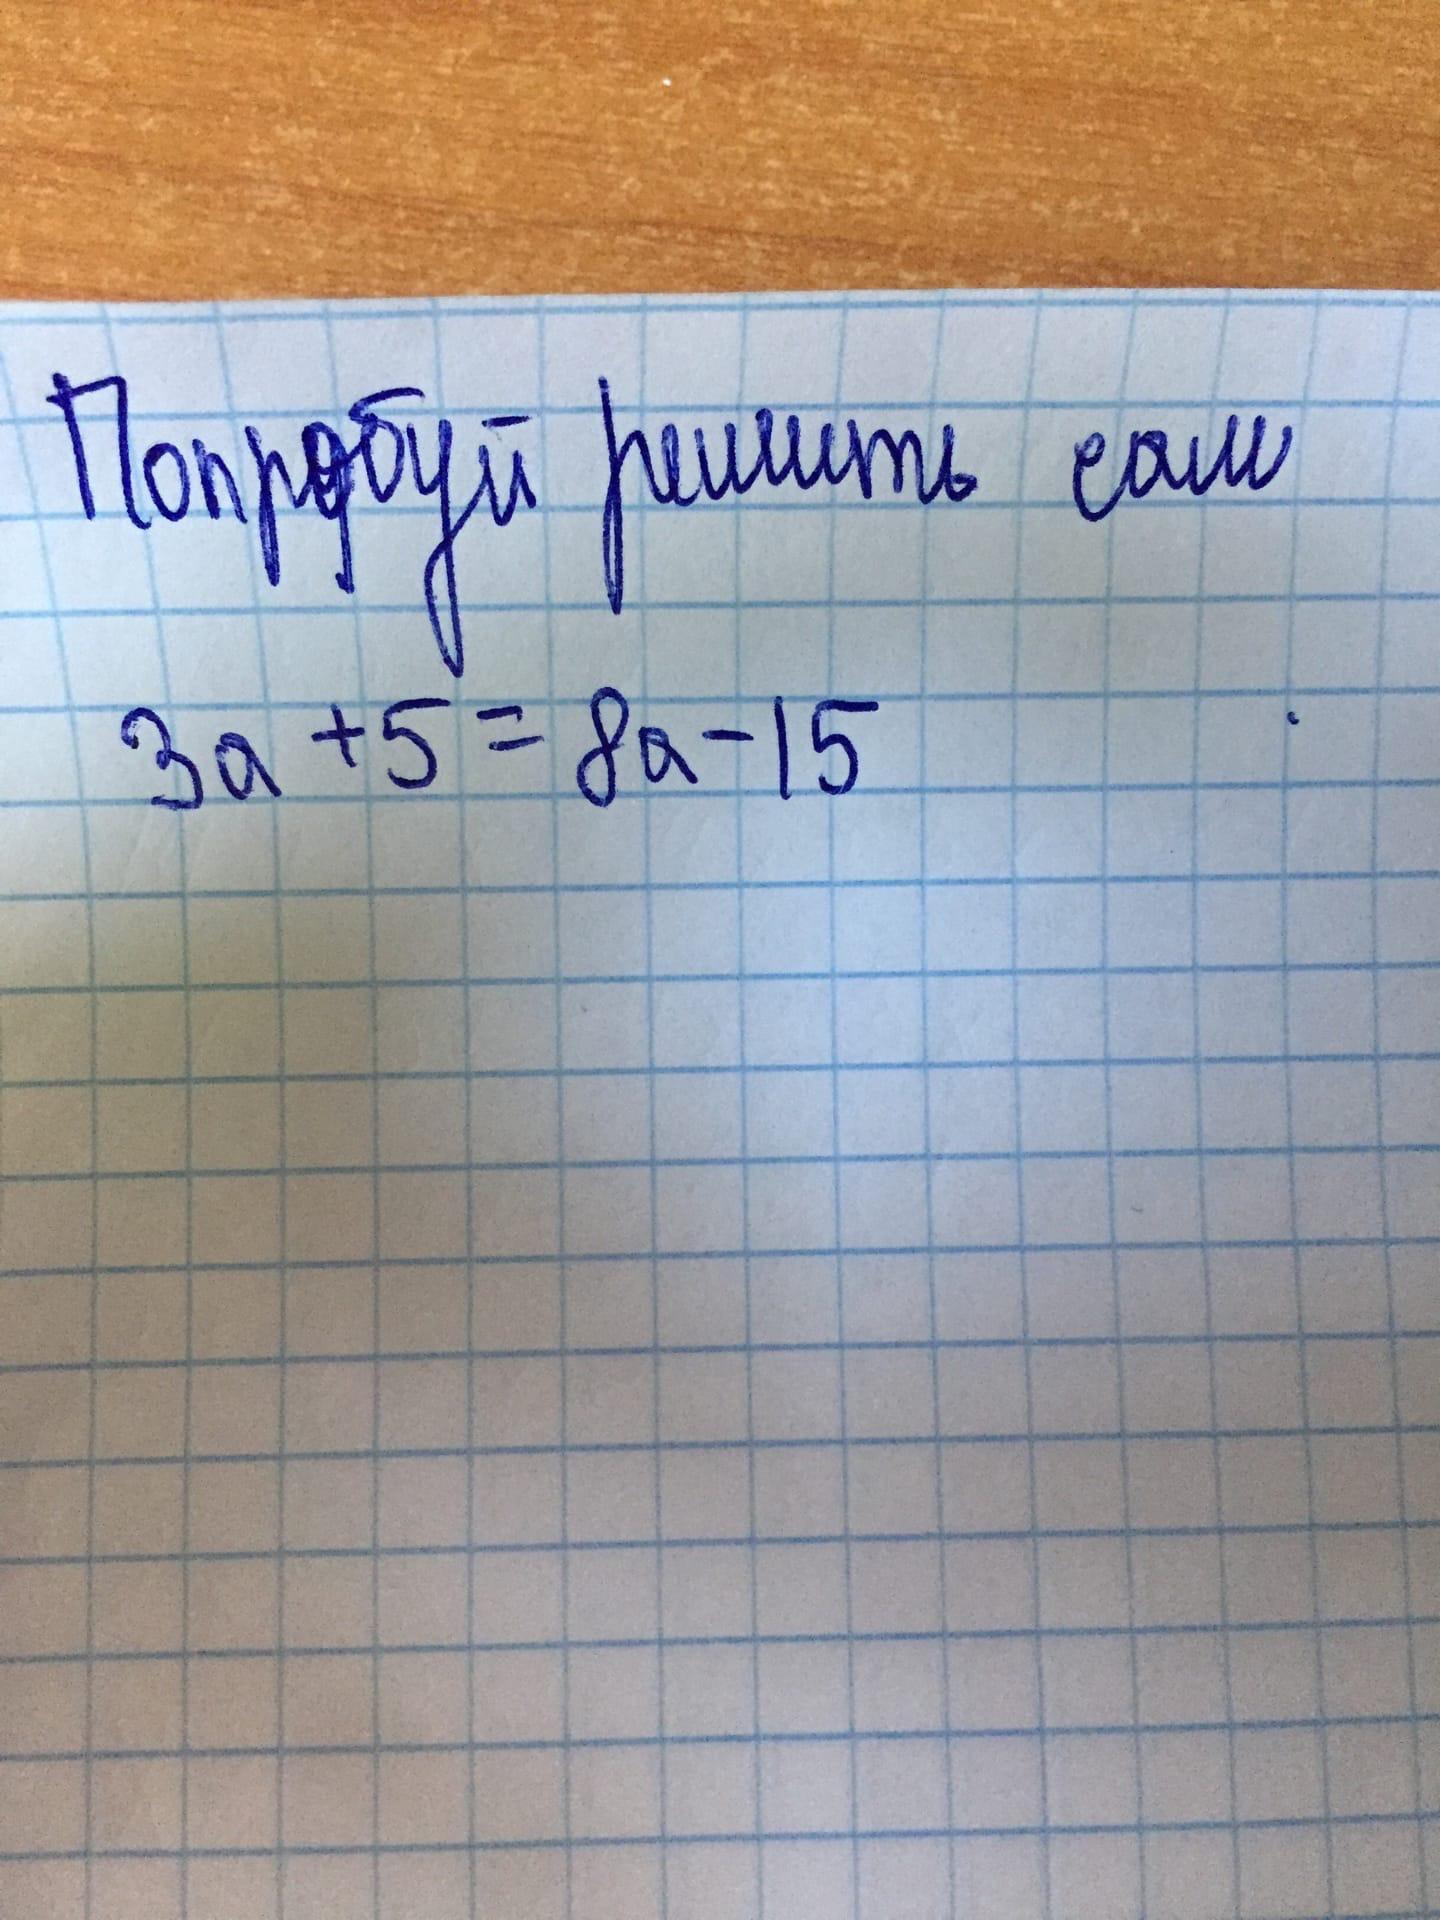 Попробуй решить сам
3a + 5 = 8a - 15